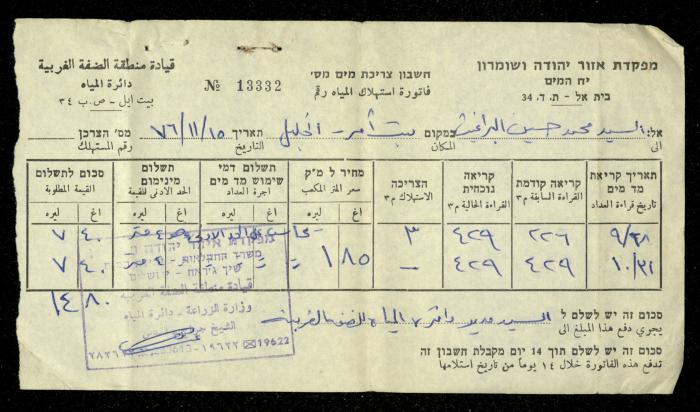 מפקדת אזור יהודה ושומרון
יח המים
בית אל - ת. ד. 34
חשבון צריכת מים מס׳
فاتورة استهلاك المياه رقم
№ 13332
قيادة منطقة الضفة الغربية
دائرة المياه
بيت ايل - ص.ب ٣٤
אל: السيد محمد حسين במקום بيت أمر - الخليل תאריך ٧٦/١١/١٥ מס׳ הצרכן
الى المكان التاريخ رقم المستهلك
תאריך קריאת מד מים
تاريخ قراءة العداد
קריאה קודמת
القراءة السابقة م٣
קריאה נוכחית
القراءة الحالية م٣
הצריכה
الاستهلاك م٣
מחיר ל מ״ק
سعر المتر المكعب
תשלום דמי שימוש מד מים
اجرة العداد
תשלום מינימום
الحد الادنى للدفع
סכום לתשלום
القيمة المطلوبة
اغ ليره اغ ليره اغ ليره اغ ليره
٩/٢٨ ٤٢٩ ٣ ٤٠ ٧
١٠/٣١ ٤٢٩ ٤٢٩ — ١٨٥ ٤٠ ٧
٨٠ ١٤
מפקדת אזור יהודה
משרד החקלאות
قيادة منطقة الضفة الغربية
وزارة الزراعة - دائرة المياه
الشيخ جراح
19622
סכום זה יש לשלם ל
يجري دفع هذا المبلغ الى السيد مدير دائرة المياه للضفة الغربية
סכום זה יש לשלם תוך 14 יום מקבלת חשבון זה
تدفع هذه الفاتورة خلال ١٤ يوماً من تاريخ استلامها